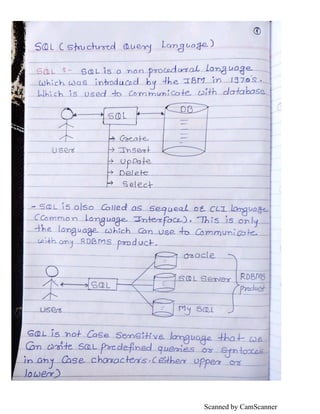 ①
SQL (Structured Query Language)
SQL :- SQL is a non procedural language
which was introduced by the IBM in 1970s.
Which is used to communicate with database
SQL
DB
users
→ Create
→ Insert
→ UpDate
→ Delete
→ Select
- SQL is also Called as sequeal or CLI language
(Common Language Interface). This is only
the language which Can use to Communicate
with any RDBMS product.
oracle
SQL
SQL Server
RDBMS
Product
users
My SQL
SQL is not Case Sensitive language that we
Can write SQL Predefined queries or Syntaxes
in any Case characters. (Either upper or
lower)
Scanned by CamScanner